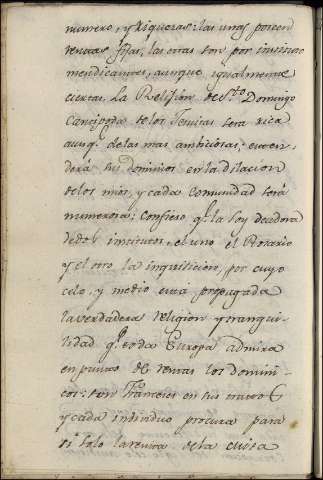 numero, y riquezas: las unas poseen
rentas fijas, las otras son por instituto
mendicantes, aunque igualmente
ciertas. La Religion de Sto. Domingo
de los Jesuitas será rica
aunq. de las mas ambiciosas; exten
derá sus dominios en la dilacion
de los mios, y cada comunidad será
numerosa: Confieso q. la soy deudora
de dos institutos, el uno el Rosario
y el otro la inquisicion, por cuyo
celo, y medio está propagada
la verdadera religion y tranqui-
lidad q. toda Europa admira
en punto de rentas los Domini-
cos: son franceses en sus tratos
y cada individuo procura para
si solo la renta de la